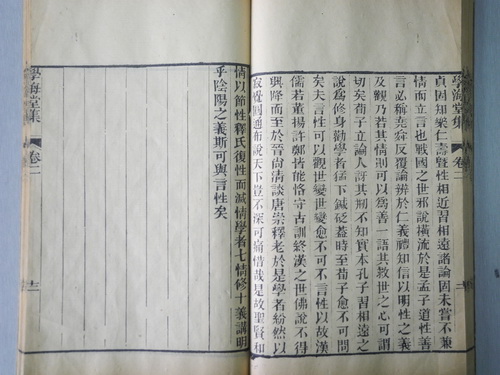 學海堂集
卷二
貞因知樂仁壽暨性相近習相遠諸論因未嘗不兼
情而立言也戰國之世邪說橫流於是孟子道性善
言必稱堯舜反覆論辨於仁義禮知信以明性之義
及觀乃若其情則可以為善一語其救世之心可謂
切矣荀子立論人訝其刺不知實本孔子習相遠之
說為修身勸學者猛下鍼砭蓋時至荀子愈不可問
矣夫言性可以觀世變世變愈不可不言性以故漢
儒若董揚許鄭皆能恪守古訓終漢之世佛說不得
興降而至於晉尚清談唐崇釋老於是學者紛然以
寂覺圓通布說天下豈不深可痛惜哉是故聖賢和
情以節性釋氏復性而滅情學者七情修十義講明
乎陰陽之義斯可與言性矣
學海堂集
卷二
十二